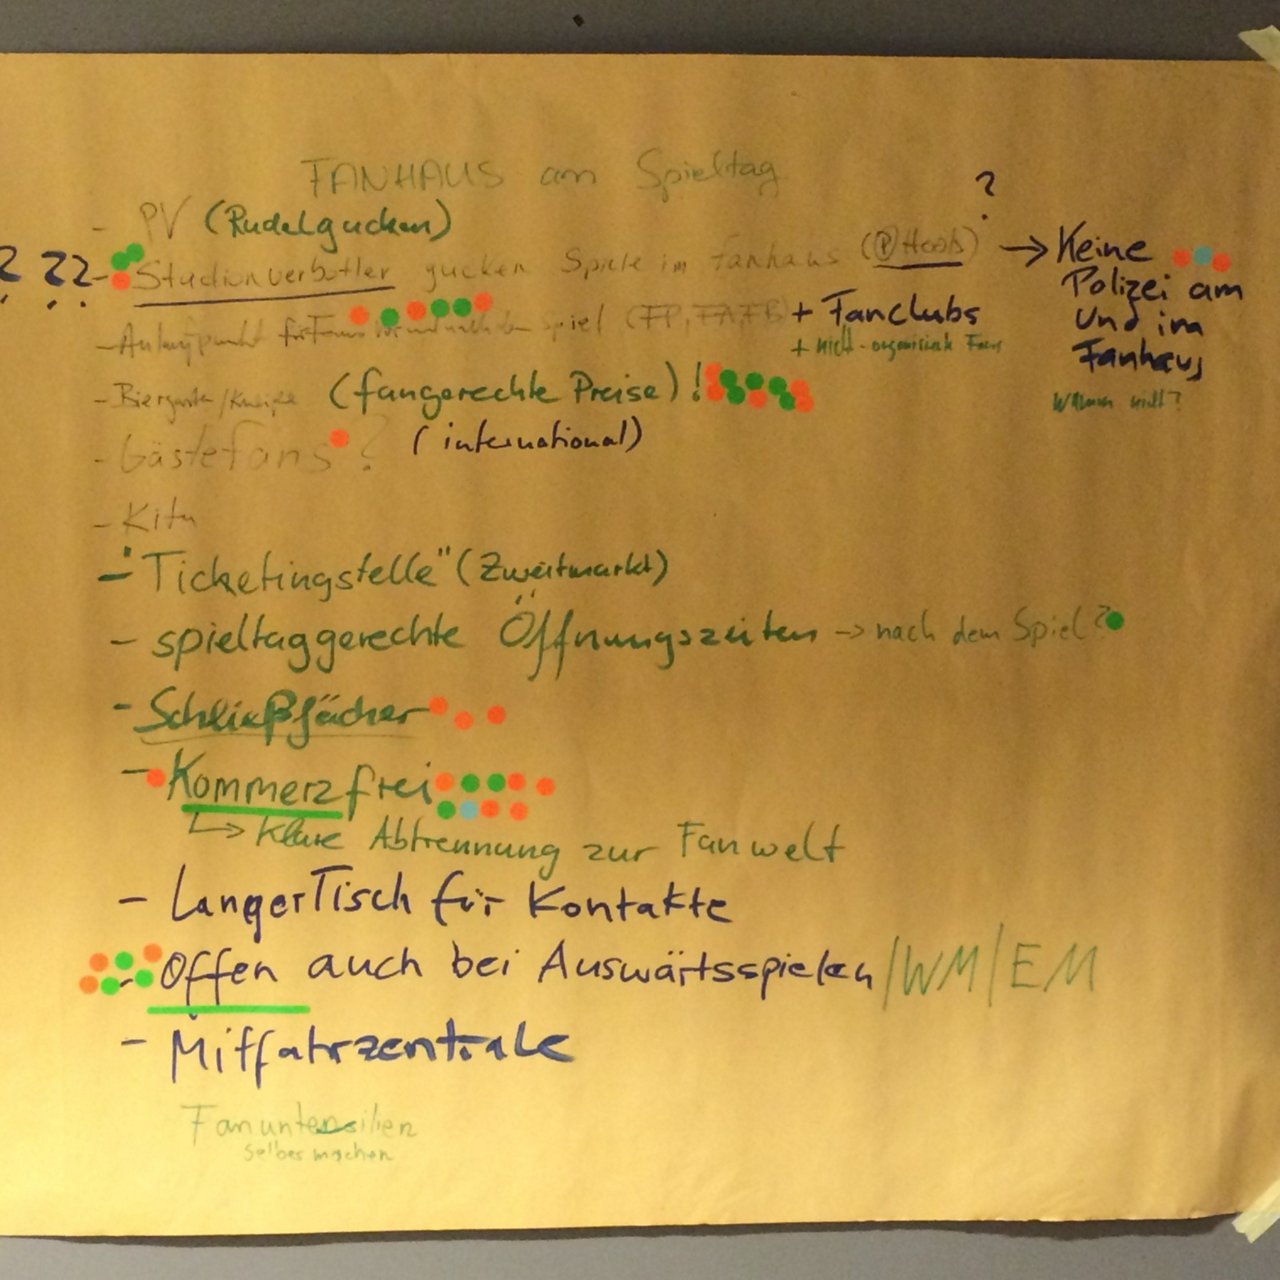 FANHAUS am Spieltag
- PV (Rudelgucken)
? ?? - Stadionverbotler gucken Spiele im Fanhaus (Ⓟ Hools) ? → Keine Polizei am und im Fanhaus
Warum nicht?
- Anlaufpunkt für Fans vor und nach dem Spiel (FP, FA, FB) + Fanclubs
+ nicht-organisierte Fans
- Biergarten/Kneipe (fangerechte Preise)!
- Gästefans? (international)
- Kita
- "Ticketingstelle" (Zweitmarkt)
- spieltaggerechte Öffnungszeiten → nach dem Spiel?
- Schließfächer
- Kommerzfrei
↳ Klare Abtrennung zur Fanwelt
- Langer Tisch für Kontakte
- Offen auch bei Auswärtsspielen/WM/EM
- Mitfahrzentrale
Fanuntensilien
selber machen